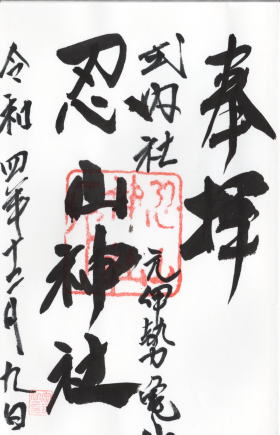 奉拝
式内社 元伊勢亀山
忍山神社
令和四年十二月九日